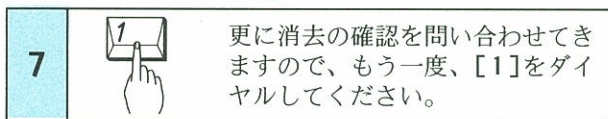 7
1
更に消去の確認を問い合わせてき
ますので、もう一度、[1]をダイ
ヤルしてください。